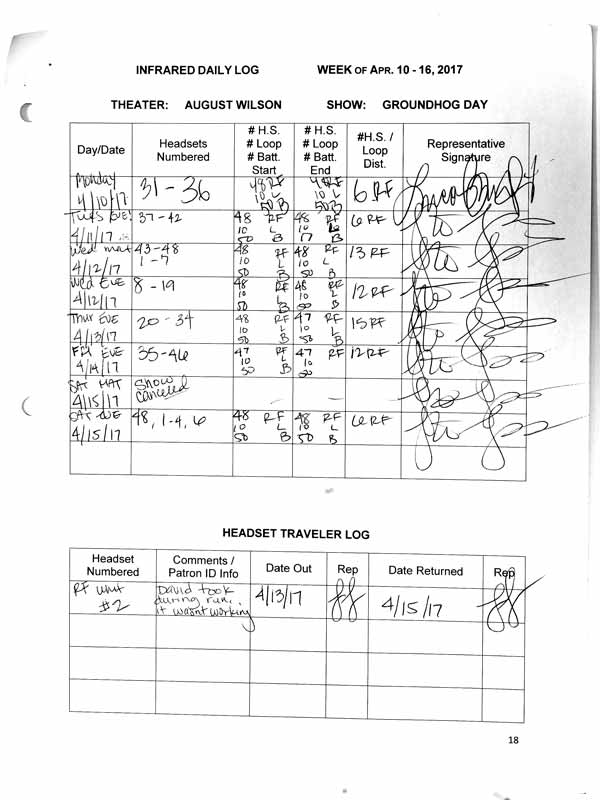 INFRARED DAILY LOG WEEK OF APR. 10 - 16, 2017
THEATER: AUGUST WILSON SHOW: GROUNDHOG DAY
Day/Date Headsets Numbered # H.S. # Loop # Batt. Start # H.S. # Loop # Batt. End #H.S. / Loop Dist. Representative Signature
Monday 4/10/17 31 - 36 48 RF 10 L 50 B 48 RF 10 L 50 B 6 RF
Tues Eve 4/11/17 37 - 42 48 RF 10 L 50 B 48 RF 10 L 17 B 6 RF
Wed mat 4/12/17 43-48 1 - 7 48 RF 10 L 50 B 48 RF 10 L 50 B 13 RF
Wed EVE 4/12/17 8 - 19 48 RF 10 L 50 B 48 RF 10 L 50 B 12 RF
Thur EVE 4/13/17 20 - 34 48 RF 10 L 50 B 47 RF 10 L 50 B 15 RF
FRI EVE 4/14/17 35-46 47 RF 10 L 50 B 47 RF 10 L 50 12 RF
SAT MAT 4/15/17 Show canceled
SAT EVE 4/15/17 48, 1-4, 6 48 RF 10 L 50 B 48 RF 10 L 50 B 6 RF
HEADSET TRAVELER LOG
Headset Numbered Comments / Patron ID Info Date Out Rep Date Returned Rep
RF unit #2 David took during run. it wasnt working 4/13/17 4/15/17
18